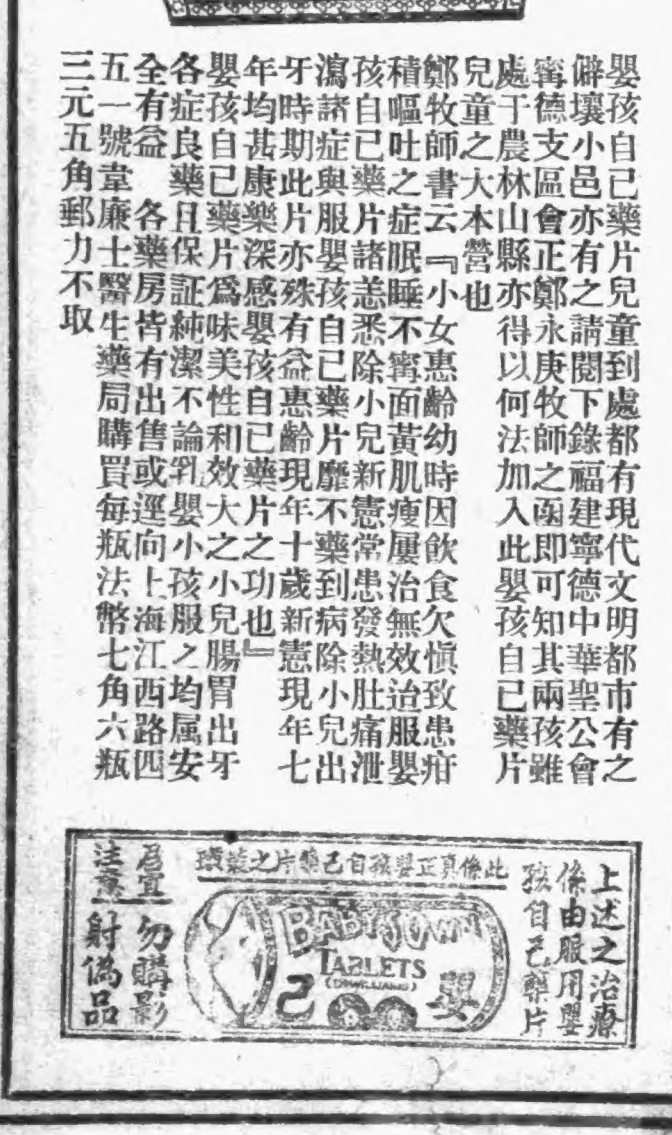 嬰孩自己藥片兒童到處都有現代文明都市有之
僻壤小邑亦有之請閱下錄福建寧德中華聖公會
寗德支區會正鄭永庚牧師之函即可知其兩孩雖
處于農林山縣亦得以何法加入此嬰孩自己藥片
兒童之大本營也
鄭牧師書云『小女惠齡幼時因飲食欠慎致患疳
積嘔吐之症眠睡不寗面黃肌瘦屢治無效迨服嬰
孩自己藥片諸恙悉除小兒新憲常患發熱肚痛泄
瀉諸症與服嬰孩自己藥片靡不藥到病除小兒出
牙時期此片亦殊有益惠齡現年十歲新憲現年七
年均甚康樂深感嬰孩自己藥片之功也』
嬰孩自己藥片爲味美性和效大之小兒腸胃出牙
各症良藥且保証純潔不論乳嬰小孩服之均属安
全有益　各藥房皆有出售或逕向上海江西路四
五一號韋廉士醫生藥局購買每瓶法幣七角六瓶
三元五角郵力不取
上述之治療
係由服用嬰
孩自己藥片
此係真正嬰孩自己藥片之裝璜
BABY'S OWN
TABLETS
(DR WILLIAMS)
嬰
己
爲宜
注意
勿購影
射僞品